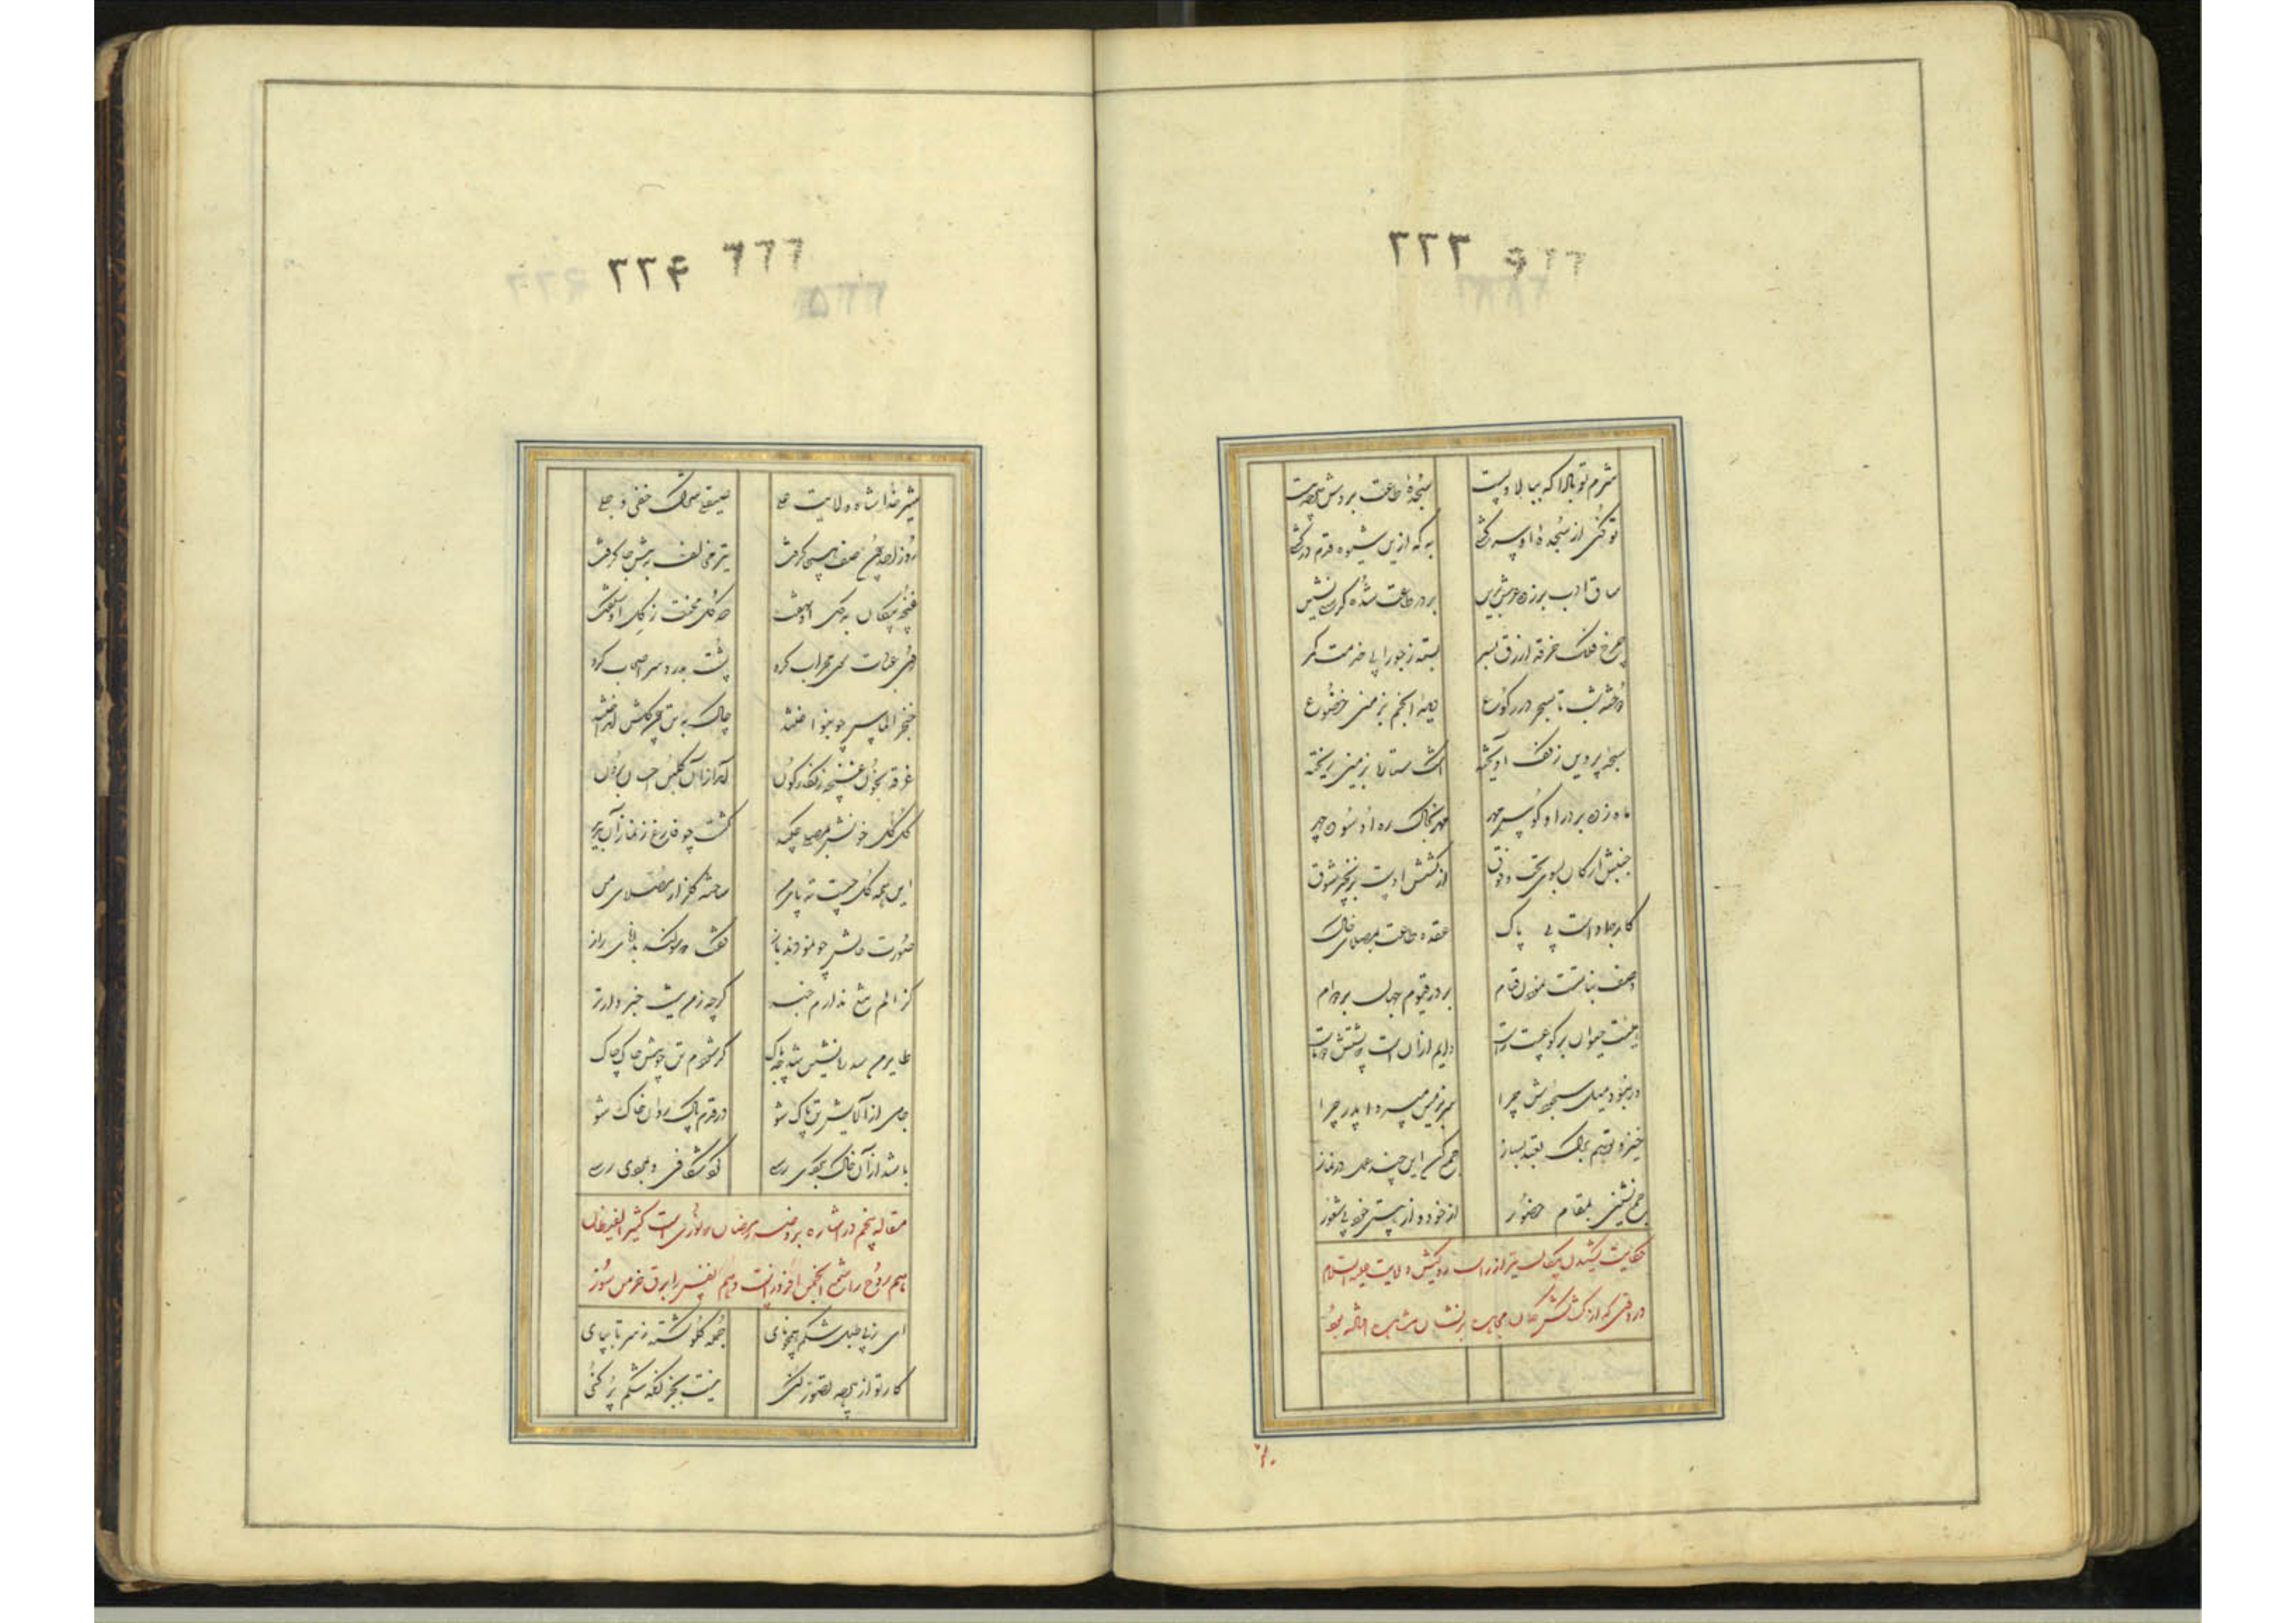 ۲۲۳
شرم تو بادا که ببالا و پست سجدهٔ طاعت بردش هر چه هست
تو کنی از سجدهٔ او سرکشی به که ازین شیوه قدم درکشی
ساق ادب برزده عرش برین بر در طاعت شده کرسی نشین
چرخ فلک خرقه ازرق ببر بسته ز جوزا پی خدمت کمر
در همه شب تا سحر در رکوع دیدهٔ انجم بزمین خضوع
سبحه پروین ز کف آویخته اشک ستاره بزمین ریخته
ماه زده بر در او کوس مهر مهر بخاک ره او سوده چهر
جنبش ارکان بسوی تحت و فوق از کشش اوست بزنجیر شوق
کار جماد است پی پاک عقده طاعت بمصلای خاک
وصف نباتست بعنوان قیام بر در قیوم جهان بر دوام
نیست حیوان بر کوعیت راست دایم ازان است که پشتش دوتاست
در نبود میل سجودش چرا سر بزمین میبرد اندر چرا
خیز و تو هم برگ تعبد بساز جمع کن این چند عمل در نماز
جمع نشینی بمقام حضور از خود و از هستی خود بی شعور
حکایت کشیدن پیکان تیر از ران روکش ولایت علیه السلام
در وقتی که از کشاکش کمان مجاهده بر نشان مشاهده افتاده بود
۲۲۴
شیر خدا شاه ولایت علی صیقلی شرک خفی و جلی
روز احد چون صف هیجا گرفت تیر مخالف به تنش جا گرفت
غنچه پیکان به گل او نهفت صد گل محنت ز گل او شکفت
روی عبادت سوی محراب کرد پشت بدرد سر اصحاب کرد
خنجر الماس چو بنواختند چاک به تن چون گلش انداختند
غرقه بخون غنچه زنگارگون آمد از آن گلبن احسان برون
گل گل خونش بمصلی چکید گشت چو فارغ ز نماز آن بدید
این همه گل چیست ته پای من ساخته گلزار مصلای من
صورت حالش چو نمودند باز گفت که سوگند بدانای راز
کز الم تیغ ندارم خبر گرچه ز من نیست خبردارتر
طایر من سدره نشین شد چه باک گر شودم تن چو قفس چاک چاک
جامی از آلایش تن پاک شو در قدم پاک روان خاک شو
باشد از آن خاک بگردی رسی گرد شکافی و بمردی رسی
مقاله پنجم در اشاره بروزه رمضان که نوریست کثیر الفیضان
هم روح را شمع انجمن افروزیست و هم نفس را برق خرمن سوز
ای ز پی طبل شکم همچو نای جمله گلو گشته ز سر تا بپای
کار تو از هر چه تصور کنی نیست بجز آنکه شکم پر کنی